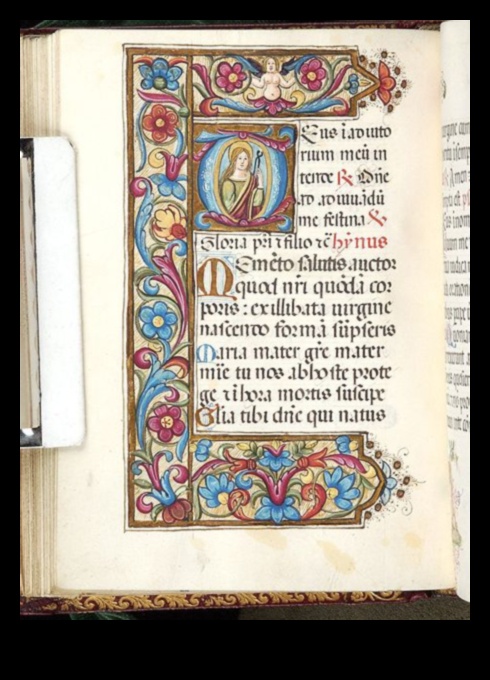 Deus ī adiuto
rium meū in
tende ℟ Dn̄e
ad adiuuādū
me festina ℣
Gloria pr̄i ⁊ filio ⁊c̄ hȳnus
Memēto salutis auctor
quod nr̄i quōdā cor
poris : ex illibata uirgine
nascendo formā sūpseris
Maria mater gr̄e mater
mīe tu nos ab hoste prote
ge ⁊ i hora mortis suscipe
Gl̄ia tibi dn̄e qui natus